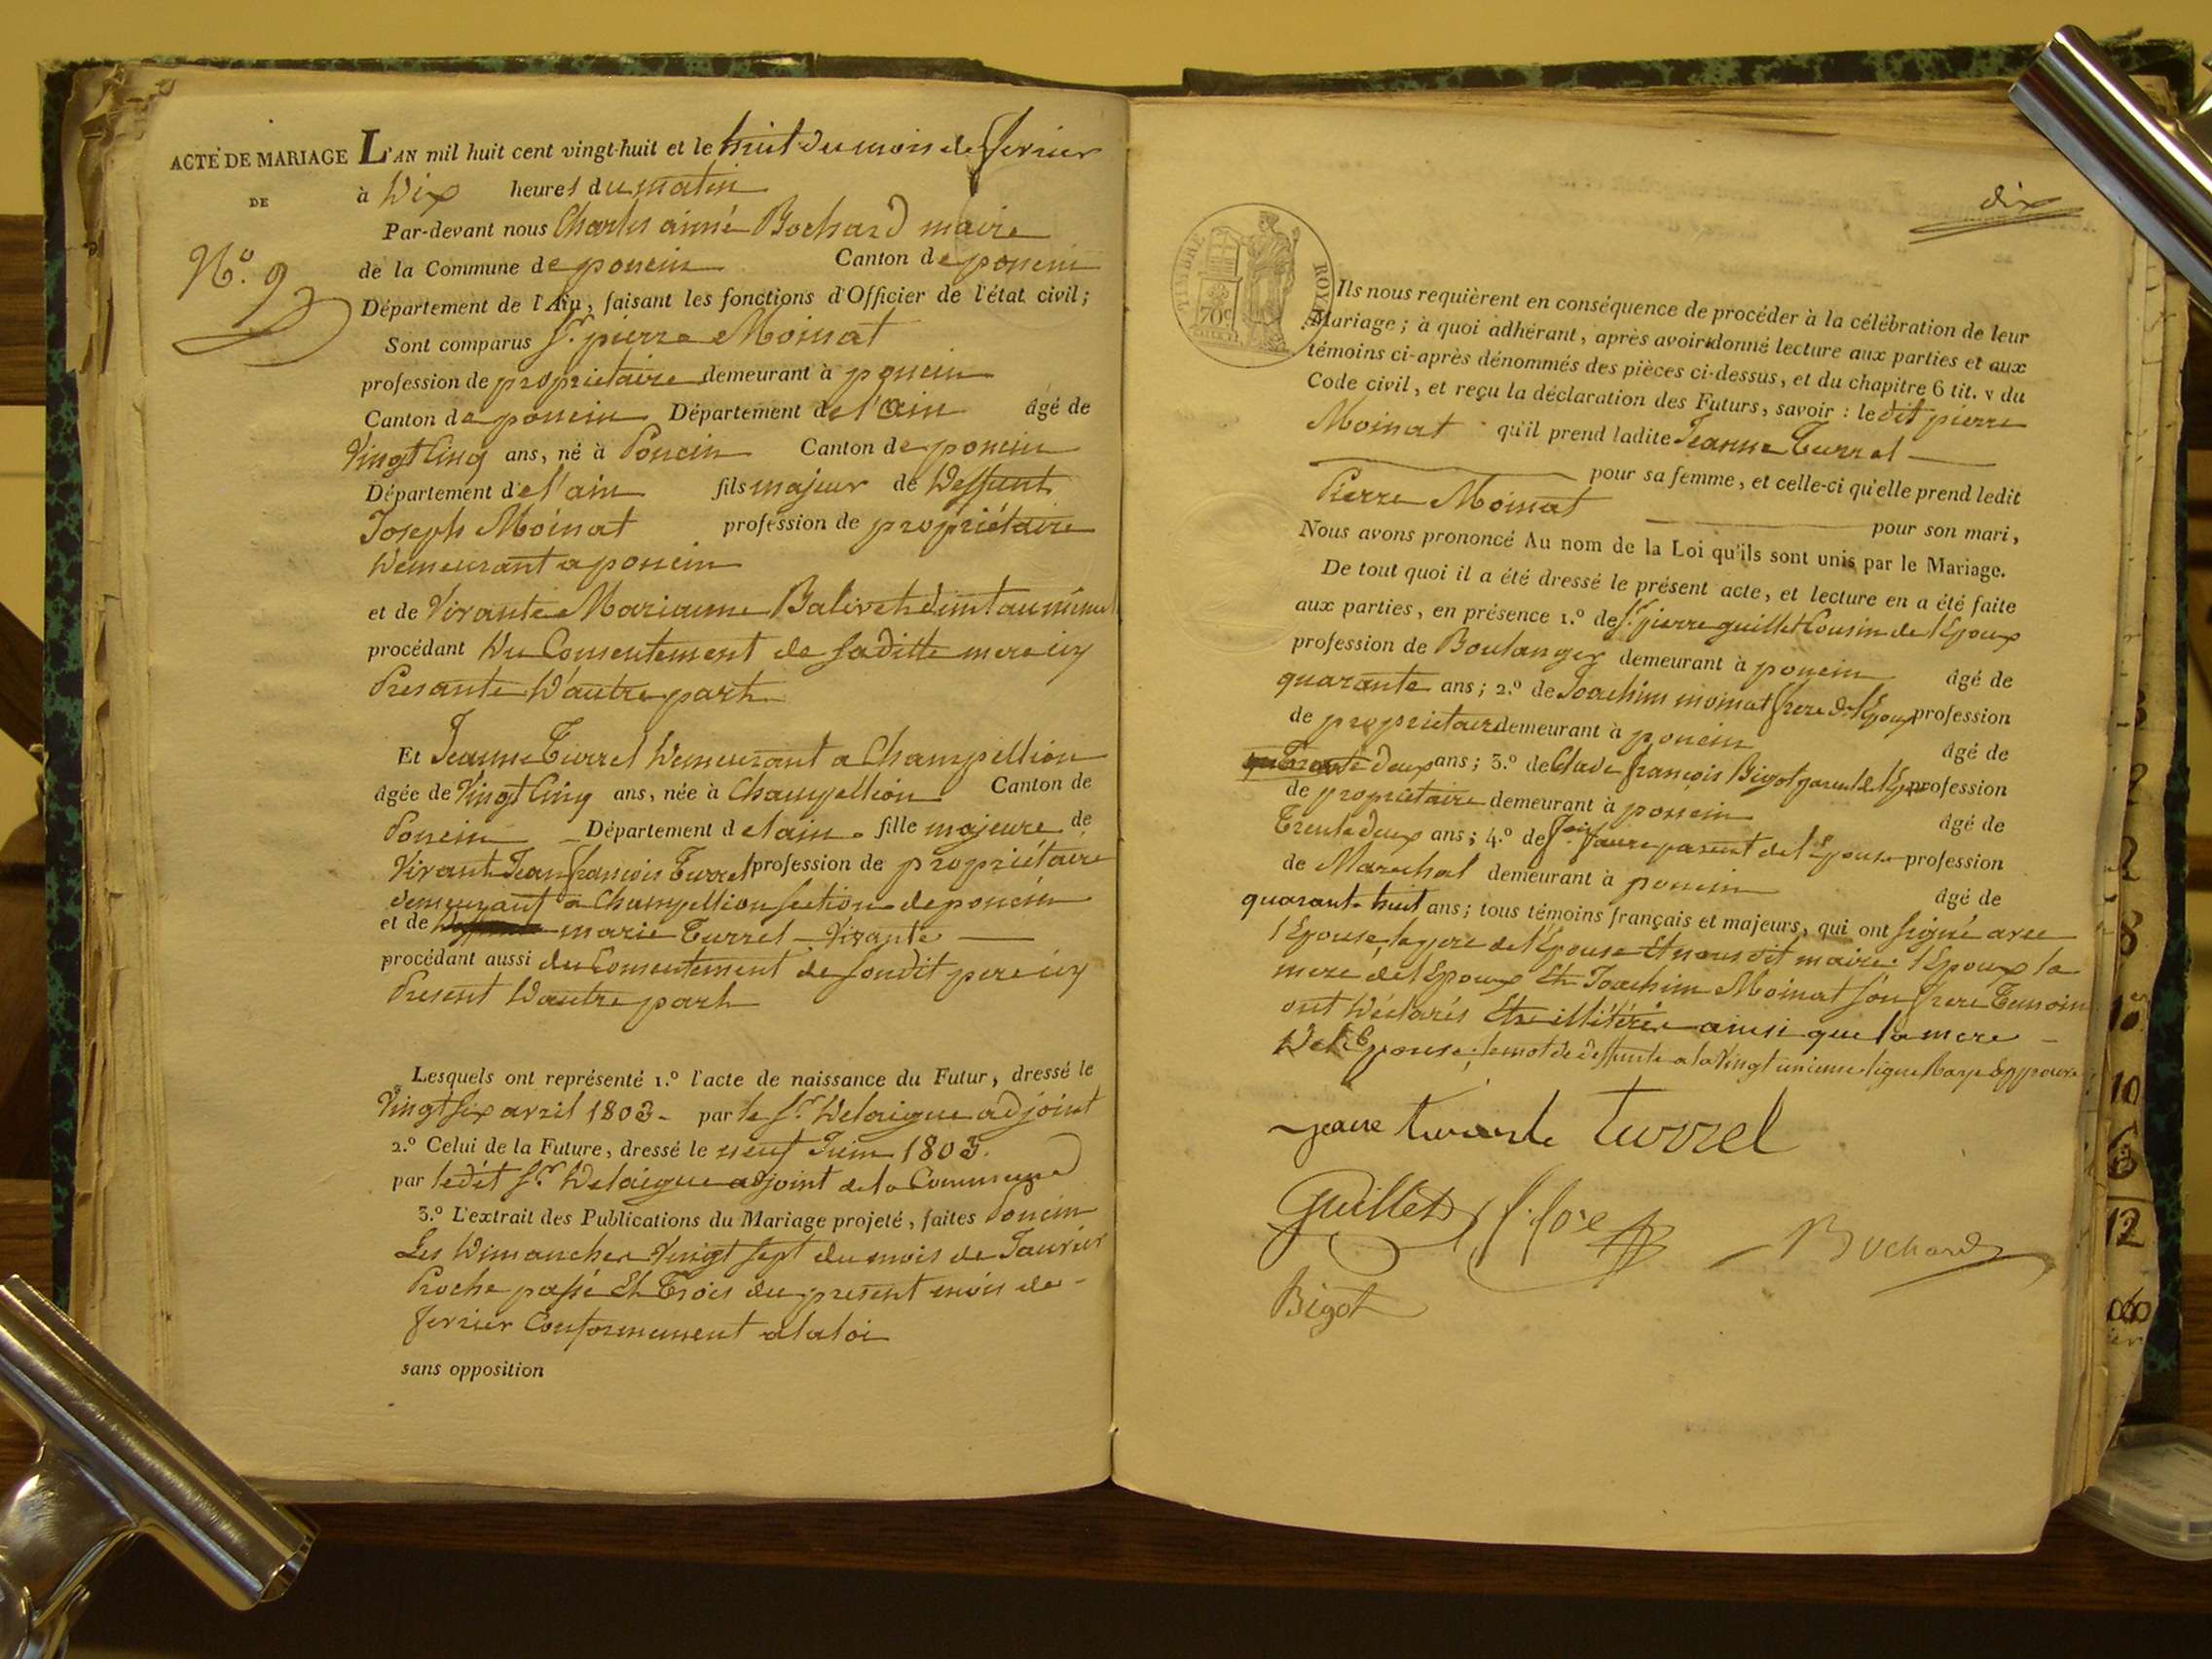 ACTE DE MARIAGE
DE
N.º 9
L'AN mil huit cent vingt-huit et le huit du mois de fevrier
à Dix heures du matin
Par-devant nous Charles aimé Bochard maire
de la Commune de poncin Canton de poncin
Département de l'Ain, faisant les fonctions d'Officier de l'état civil;
Sont comparus Sr. pierre Moinat
profession de proprietaire demeurant à poncin
Canton de poncin Département de l'ain âgé de
Vingt Cinq ans, né à Poncin Canton de poncin
Département de l'ain fils majeur de Deffunt
Joseph Moinat profession de propriétaire
Demeurant a poncin
et de Vivante Marianne Balivet dmt au même
procédant Du Consentement de sa ditte mere icy
Presante D'autre part
Et Jeanne Turrel Demeurant a Champellion
âgée de Vingt Cinq ans, née à Champellion Canton de
Poncin Département de lain fille majeure de
Vivant Jean françois Turrel profession de propriétaire
demeurant a Champellion section de poncin
et de marie Turrel Vivante
procédant aussi du Consentement de son dit pere icy
Present D'autre part
Lesquels ont représenté 1.º l'acte de naissance du Futur, dressé le
Vingt six avril 1803 par le Sr. Delaigue adjoint
2.º Celui de la Future, dressé le neuf Juin 1803.
par ledit Sr. Delaigue adjoint de la Commune
3.º L'extrait des Publications du Mariage projeté, faites Poncin
Les Dimanches Vingt sept du mois de Janvier
Proche passé Et Trois du present mois de
fevrier Conformement a la loi
sans opposition
dix
TIMBRE ROYAL
70 c
Ils nous requièrent en conséquence de procéder à la célébration de leur
Mariage; à quoi adhérant, après avoir donné lecture aux parties et aux
témoins ci-après dénommés des pièces ci-dessus, et du chapitre 6 tit. v du
Code civil, et reçu la déclaration des Futurs, savoir : le dit pierre
Moinat qu'il prend ladite Jeanne Turrel
pour sa femme, et celle-ci qu'elle prend ledit
Pierre Moinat pour son mari,
Nous avons prononcé Au nom de la Loi qu'ils sont unis par le Mariage.
De tout quoi il a été dressé le présent acte, et lecture en a été faite
aux parties, en présence 1.º de Sr. pierre guillet Cousin de l'Epoux
profession de Boulanger demeurant à poncin âgé de
quarante ans; 2.º de Joachim moinat frere de l'Epoux profession
de proprietaire demeurant à poncin âgé de
Trente deux ans; 3.º de Clade françois Bigot parent de l'Epoux profession
de proprietaire demeurant à poncin âgé de
Trente deux ans; 4.º de faure parent de l'Epouse profession
de Marechal demeurant à poncin âgé de
quarante huit ans; tous témoins français et majeurs, qui ont signé avec
l'Epouse, le pere de l'Epouse Et nous dit maire. l'Epoux la
mere de l'Epoux Et Joachim Moinat son frere Temoin
ont Déclarés Etre illitérée ainsi que la mere
De l'Epouse. le mot de Deffunte a la Vingt unieme ligne
turrel
Guillet Bochard
Bigot
2
8
10
6
12